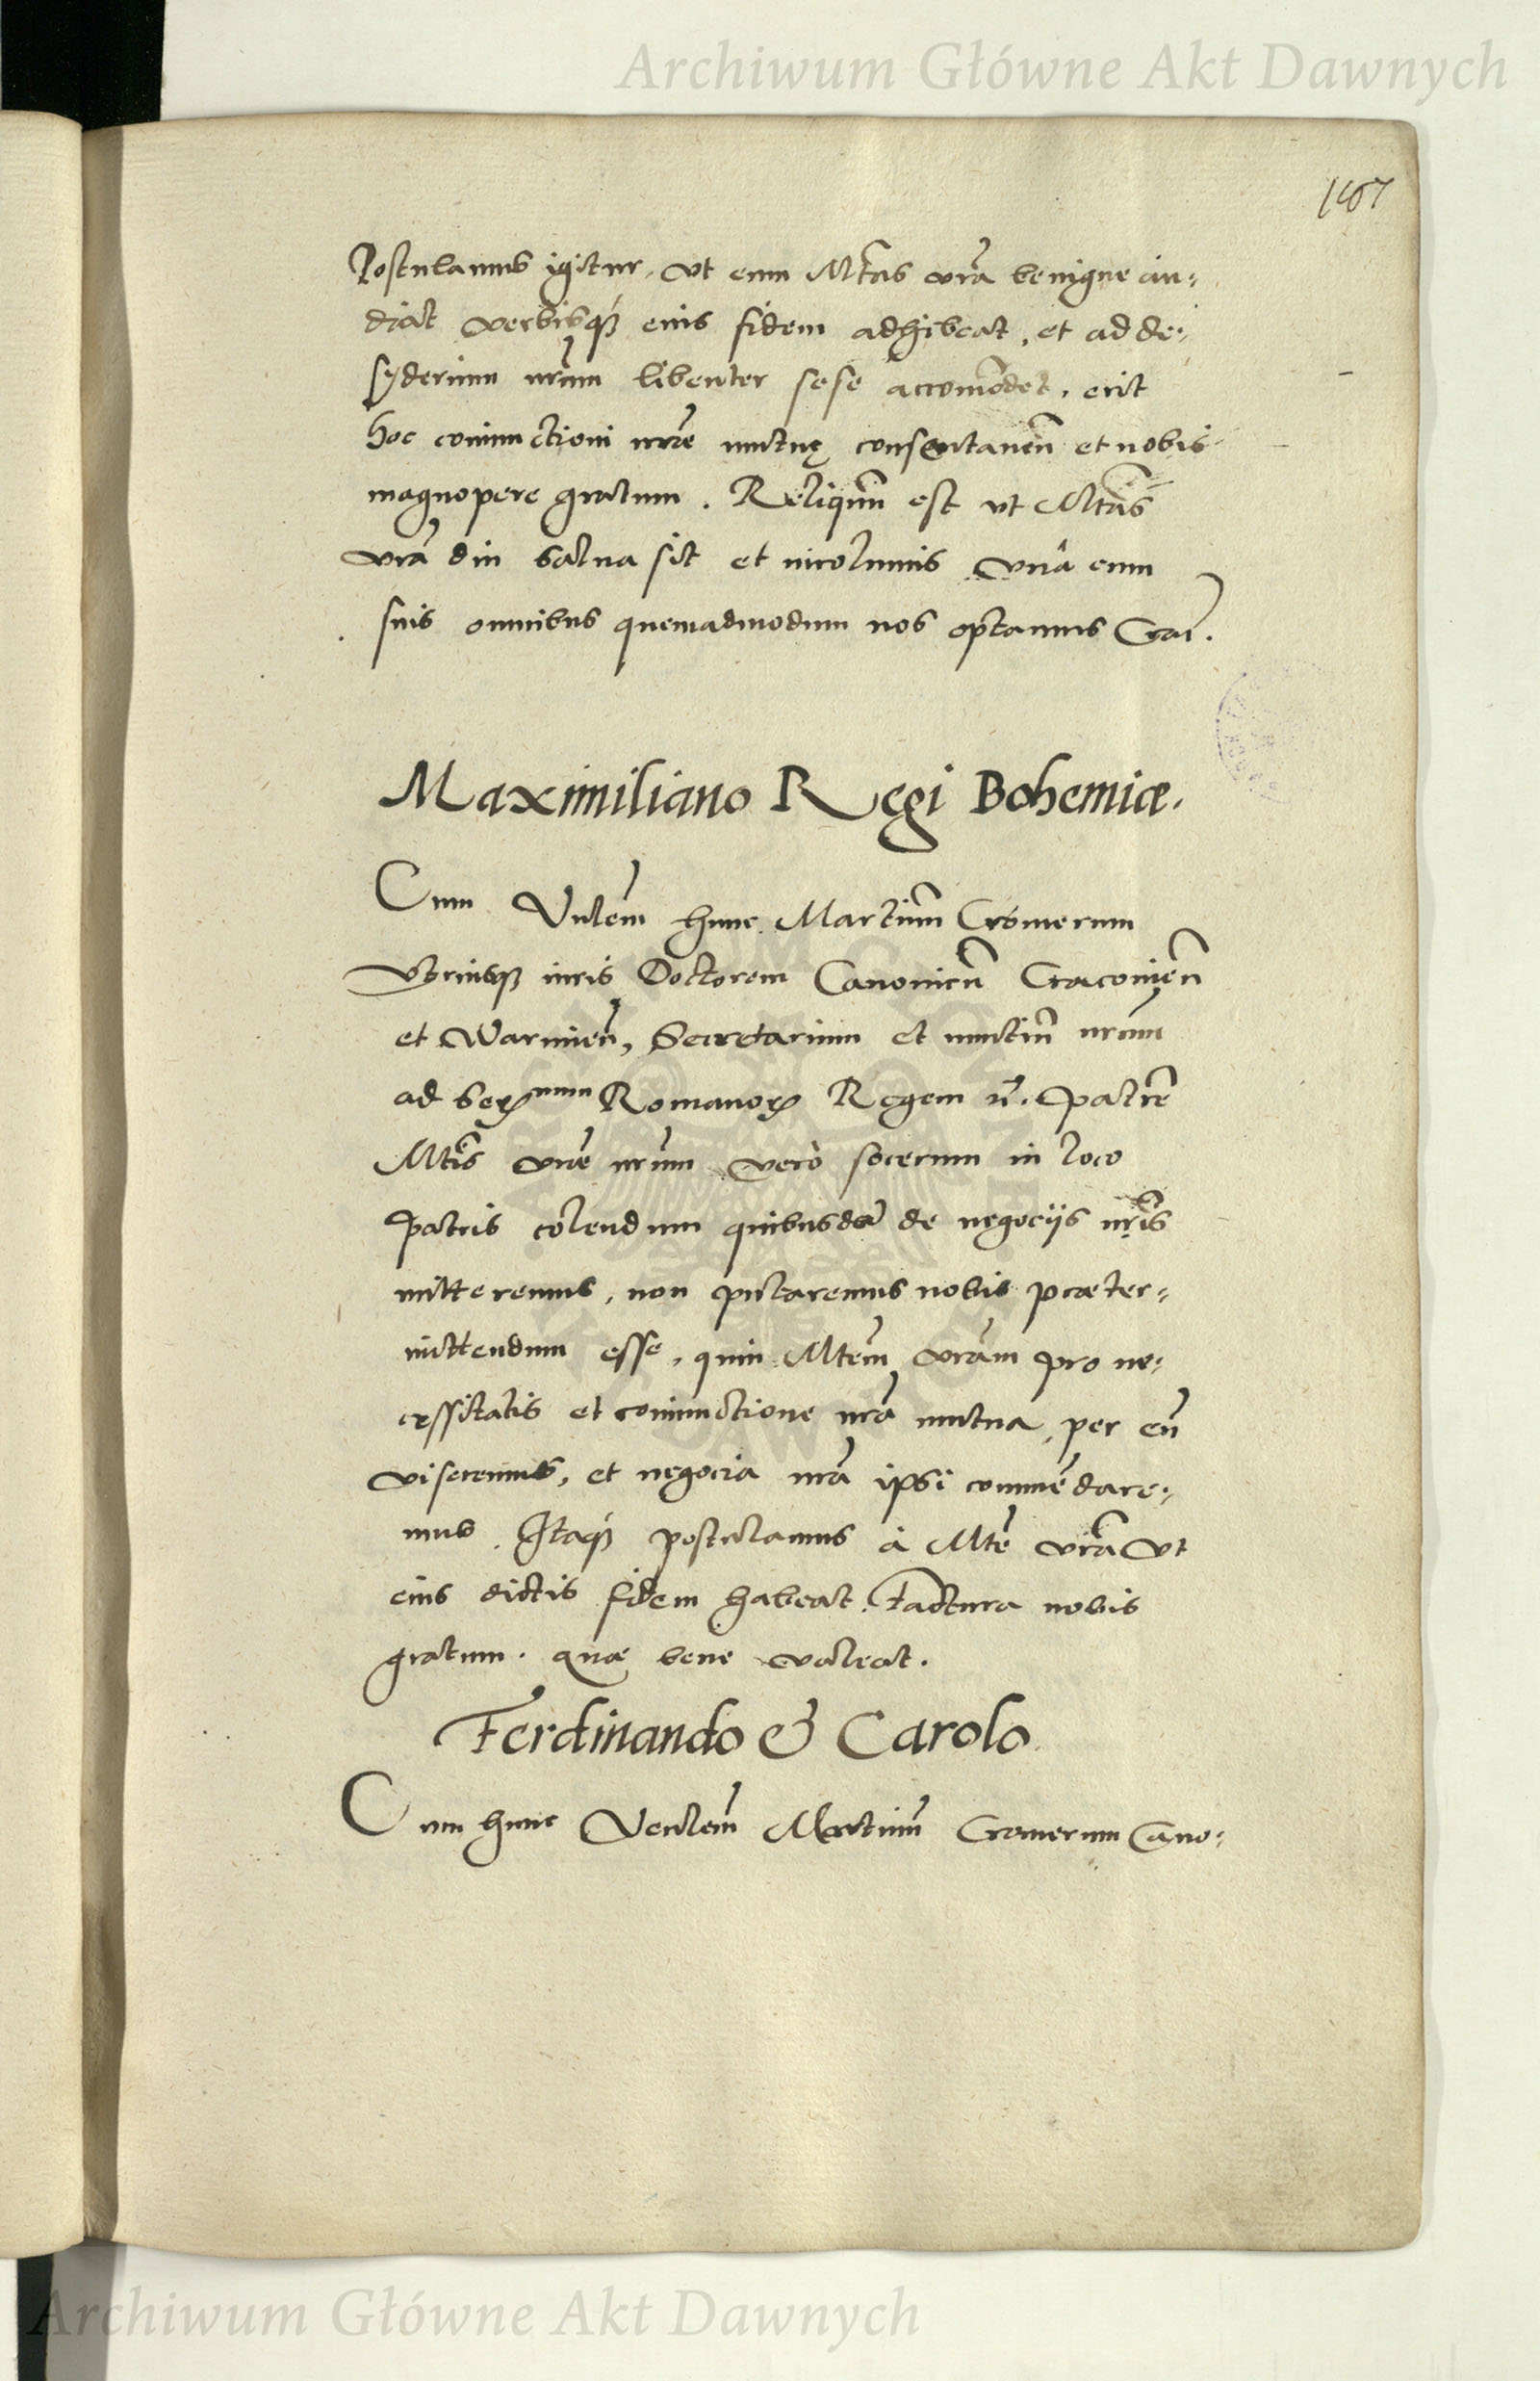 Archiwum Główne Akt Dawnych
Postulamus igitur, ut eum Mtas vrã benigne au-
diat verbisq́ eius fidem adhibeat, et ad de-
syderium nrũm libenter sese accom̃odet, erit
hoc coniunctioni nrãe mutuę consentaneũ et nobis
magnopere gratum. Reliquũm est ut Mtãs
vrã diu salua sit et incolumis vnâ cum
suis omnibus quemadmodum nos optamus Crac̃.
Maximiliano Regi Bohemiæ.
Cum Vnlem̃ hunc Martinũm Crómerum
Vtriusq iuris Doctorem Canonicũ Cracouien̄
et Warmien̄, Secretarium et nunctiũ nrũm
ad Serᵐᵘᵐ Romanorꝝ Regem n̄. Patrẽ
Mtis̃ vrãe nrũm verò socerum in loco
Patris colendum quibusdã de negocijs nrĩs
mitteremus, non putaremus nobis præter-
mittendum esse, quin Mtem̃ vrãm pro ne-
cessitatis et coniunctione nrã mutua, per eũ
viseremus, et negocia nrã ipsi commẽdare-
mus. Itaq́ postulamus á Mte vrã vt
eius dictis fidem habeat. Factura nobis
gratum. quæ bene valeat.
Ferdinando & Carolo
Cum hunc Venlem̃ Martinũm Cromerum Cano-
Archiwum Główne Akt Dawnych